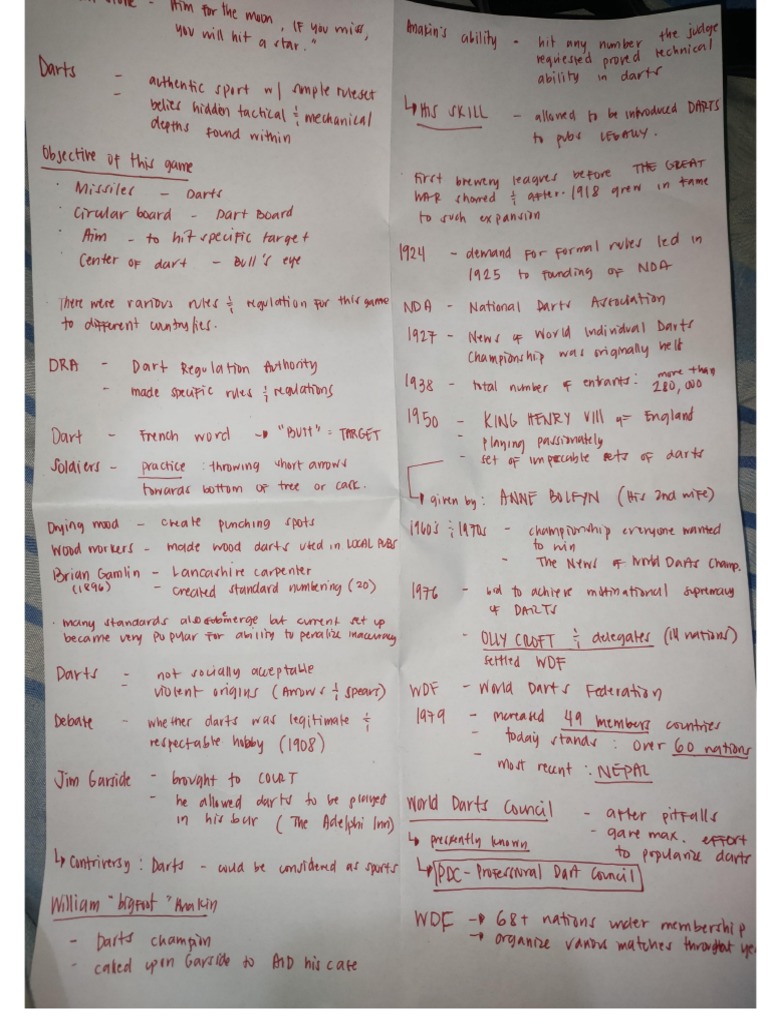 Aim for the moon, If you miss,
you will hit a star."
Darts - authentic sport w/ simple ruleset
- belies hidden tactical & mechanical
depths found within
Objective of this game
· Missiles - Darts
· Circular board - Dart Board
· Aim - to hit specific target
· Center of dart - Bull's eye
· There were various rules & regulation for this game
to different countries.
DRA - Dart Regulation Authority
- made specific rules & regulations
Dart - French word → "BUTT" = TARGET
Soldiers - practice : throwing short arrows
towards bottom of tree or cask.
Drying mood - create punching spots
Wood workers - made wood darts used in LOCAL PUBS
Brian Gamlin - Lancashire carpenter
(1896) - created standard numbering (20)
· many standards also submerge but current set up
became very popular for ability to penalize inaccuracy
Darts - not socially acceptable
- violent origins (Arrows & spears)
Debate - whether darts was legitimate &
respectable hobby (1908)
Jim Garside - brought to COURT
- he allowed darts to be played
in his bar (The Adelphi Inn)
↳ Contriversy : Darts - could be considered as sports
William "bigfoot" Anakin
- Darts champion
- called upon Garside to AID his case
Anakin's ability - hit any number the judge
requested proved technical
ability in darts
↳ His SKILL - allowed to be introduced DARTS
to pubs LEGALLY.
First brewery leagues before THE GREAT
WAR showed & after. 1918 grew in fame
to such expansion
1924 - demand for formal rules led in
1925 to founding of NDA
NDA - National Darts Association
1927 - News of World Individual Darts
Championship was originally held
1938 - total number of entrants : more than
280,000
1950 - KING HENRY VIII of England
- playing passionately
- set of impeccable sets of darts
↳ given by : ANNE BOLEYN (His 2nd wife)
1960's & 1970s - championship everyone wanted
to win
- The News of World Darts Champ.
1976 - bid to achieve multinational supremacy
of DARTS
- OLLY CROFT & delegates (14 nations)
settled WDF
WDF - World Darts Federation
1979 - increased 49 members countries
- today stands : over 60 nations
- most recent : NEPAL
World Darts Council - after pitfalls
- gave max. effort
to popularize darts
↳ presently known
↳ PDC - Professional Dart Council
WDF → 68+ nations under membership
→ organize various matches throughout